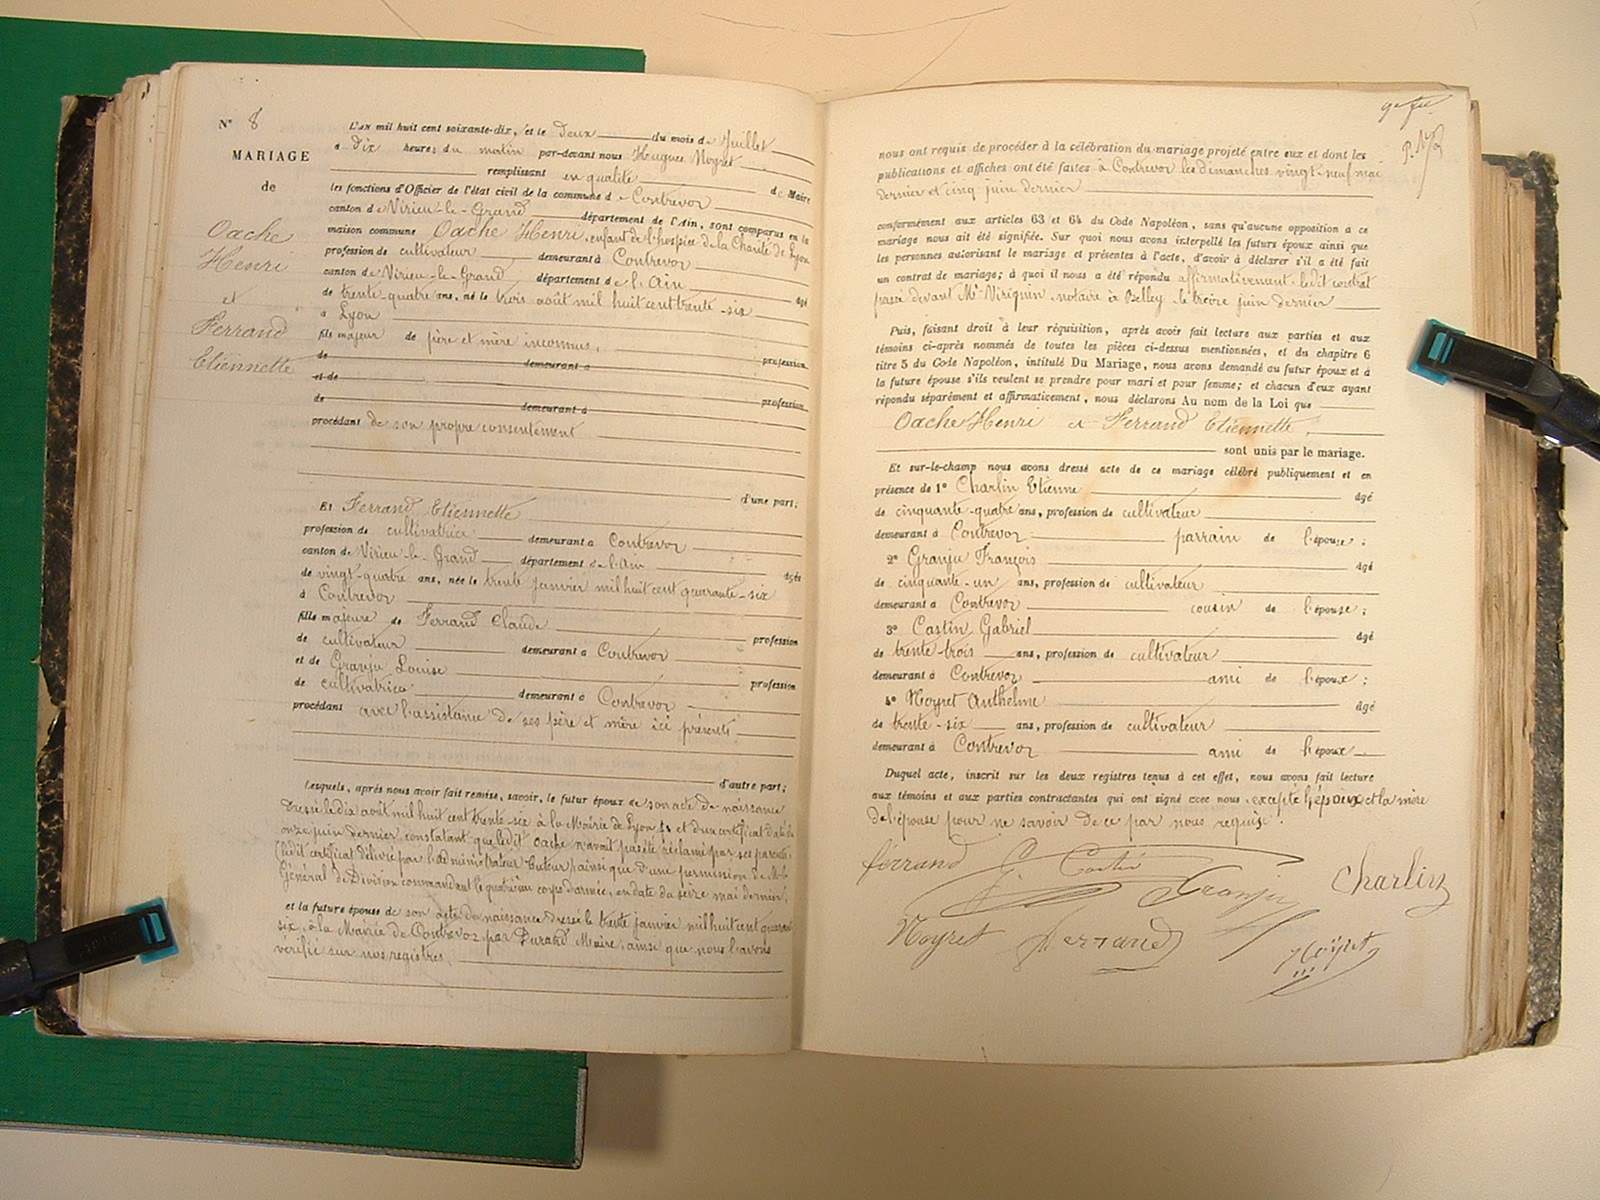 N° 8
MARIAGE
de
Oache
Henri
et
Ferrand
Etiennette
L'an mil huit cent soixante-dix, et le deux du mois de Juillet
à dix heures du matin par-devant nous Hugues Noyret
remplissant en qualité de Maire
les fonctions d'Officier de l'état civil de la commune de Contrevoz
canton de Virieu-le-Grand département de l'Ain, sont comparus en la
maison commune Oache Henri, enfant de l'hospice de la Charité de Lyon
profession de cultivateur demeurant à Contrevoz
canton de Virieu-le-Grand département de l'Ain âgé
de trente-quatre ans, né le trois août mil huit cent trente-six
à Lyon
fils majeur de père et mère inconnus,
de demeurant à profession
et de
de demeurant à profession
procédant de son propre consentement
d'une part;
Et Ferrand Etiennette
profession de cultivatrice demeurant à Contrevoz
canton de Virieu-le-Grand département de l'Ain âgée
de vingt-quatre ans, née le trente janvier mil huit cent quarante-six
à Contrevoz
fille majeure de Ferrand Claude profession
de cultivateur demeurant à Contrevoz
et de Granju Louise profession
de cultivatrice demeurant à Contrevoz
procédant avec l'assistance de ses père et mère ici présents
d'autre part;
Lesquels, après nous avoir fait remise, savoir, le futur époux de son acte de naissance
dressé le dix août mil huit cent trente-six à la Mairie de Lyon, et d'un certificat daté du
onze juin dernier constatant que ledit Oache n'avait pas été réclamé par ses parents,
(ledit certificat délivré par l'administrateur tuteur) ainsi que d'une permission de Mr le
Général de Division commandant le quatrième corps d'armée, en date du seize mai dernier,
et la future épouse de son acte de naissance dressé le trente janvier mil huit cent quarante
six, à la Mairie de Contrevoz par Durand Maire, ainsi que nous l'avons
vérifié sur nos registres,
nous ont requis de procéder à la célébration du mariage projeté entre eux et dont les
publications et affiches ont été faites à Contrevoz les dimanches vingt-neuf mai
dernier et cinq juin dernier
conformément aux articles 63 et 64 du Code Napoléon, sans qu'aucune opposition à ce
mariage nous ait été signifiée. Sur quoi nous avons interpellé les futurs époux ainsi que
les personnes autorisant le mariage et présentes à l'acte, d'avoir à déclarer s'il a été fait
un contrat de mariage; à quoi il nous a été répondu affirmativement, ledit contrat
passé devant Me Viriguin, notaire à Belley le treize juin dernier
Puis, faisant droit à leur réquisition, après avoir fait lecture aux parties et aux
témoins ci-après nommés de toutes les pièces ci-dessus mentionnées, et du chapitre 6
titre 5 du Code Napoléon, intitulé Du Mariage, nous avons demandé au futur époux et à
la future épouse s'ils veulent se prendre pour mari et pour femme; et chacun d'eux ayant
répondu séparément et affirmativement, nous déclarons Au nom de la Loi que
Oache Henri et Ferrand Etiennette,
sont unis par le mariage.
Et sur-le-champ nous avons dressé acte de ce mariage célébré publiquement et en
présence de 1° Charlin Etienne âgé
de cinquante-quatre ans, profession de cultivateur
demeurant à Contrevoz parrain de l'épouse;
2° Granju François âgé
de cinquante-un ans, profession de cultivateur
demeurant à Contrevoz cousin de l'épouse;
3° Castin Gabriel âgé
de trente-trois ans, profession de cultivateur
demeurant à Contrevoz ami de l'époux;
4° Noyret Anthelme âgé
de trente-six ans, profession de cultivateur
demeurant à Contrevoz ami de l'époux
Duquel acte, inscrit sur les deux registres tenus à cet effet, nous avons fait lecture
aux témoins et aux parties contractantes qui ont signé avec nous, excepté l'époux et la mère
de l'épouse pour ne savoir de ce par nous requis.
ferrand G. Castin Granju Charlin
Noyret ferrand Noyret